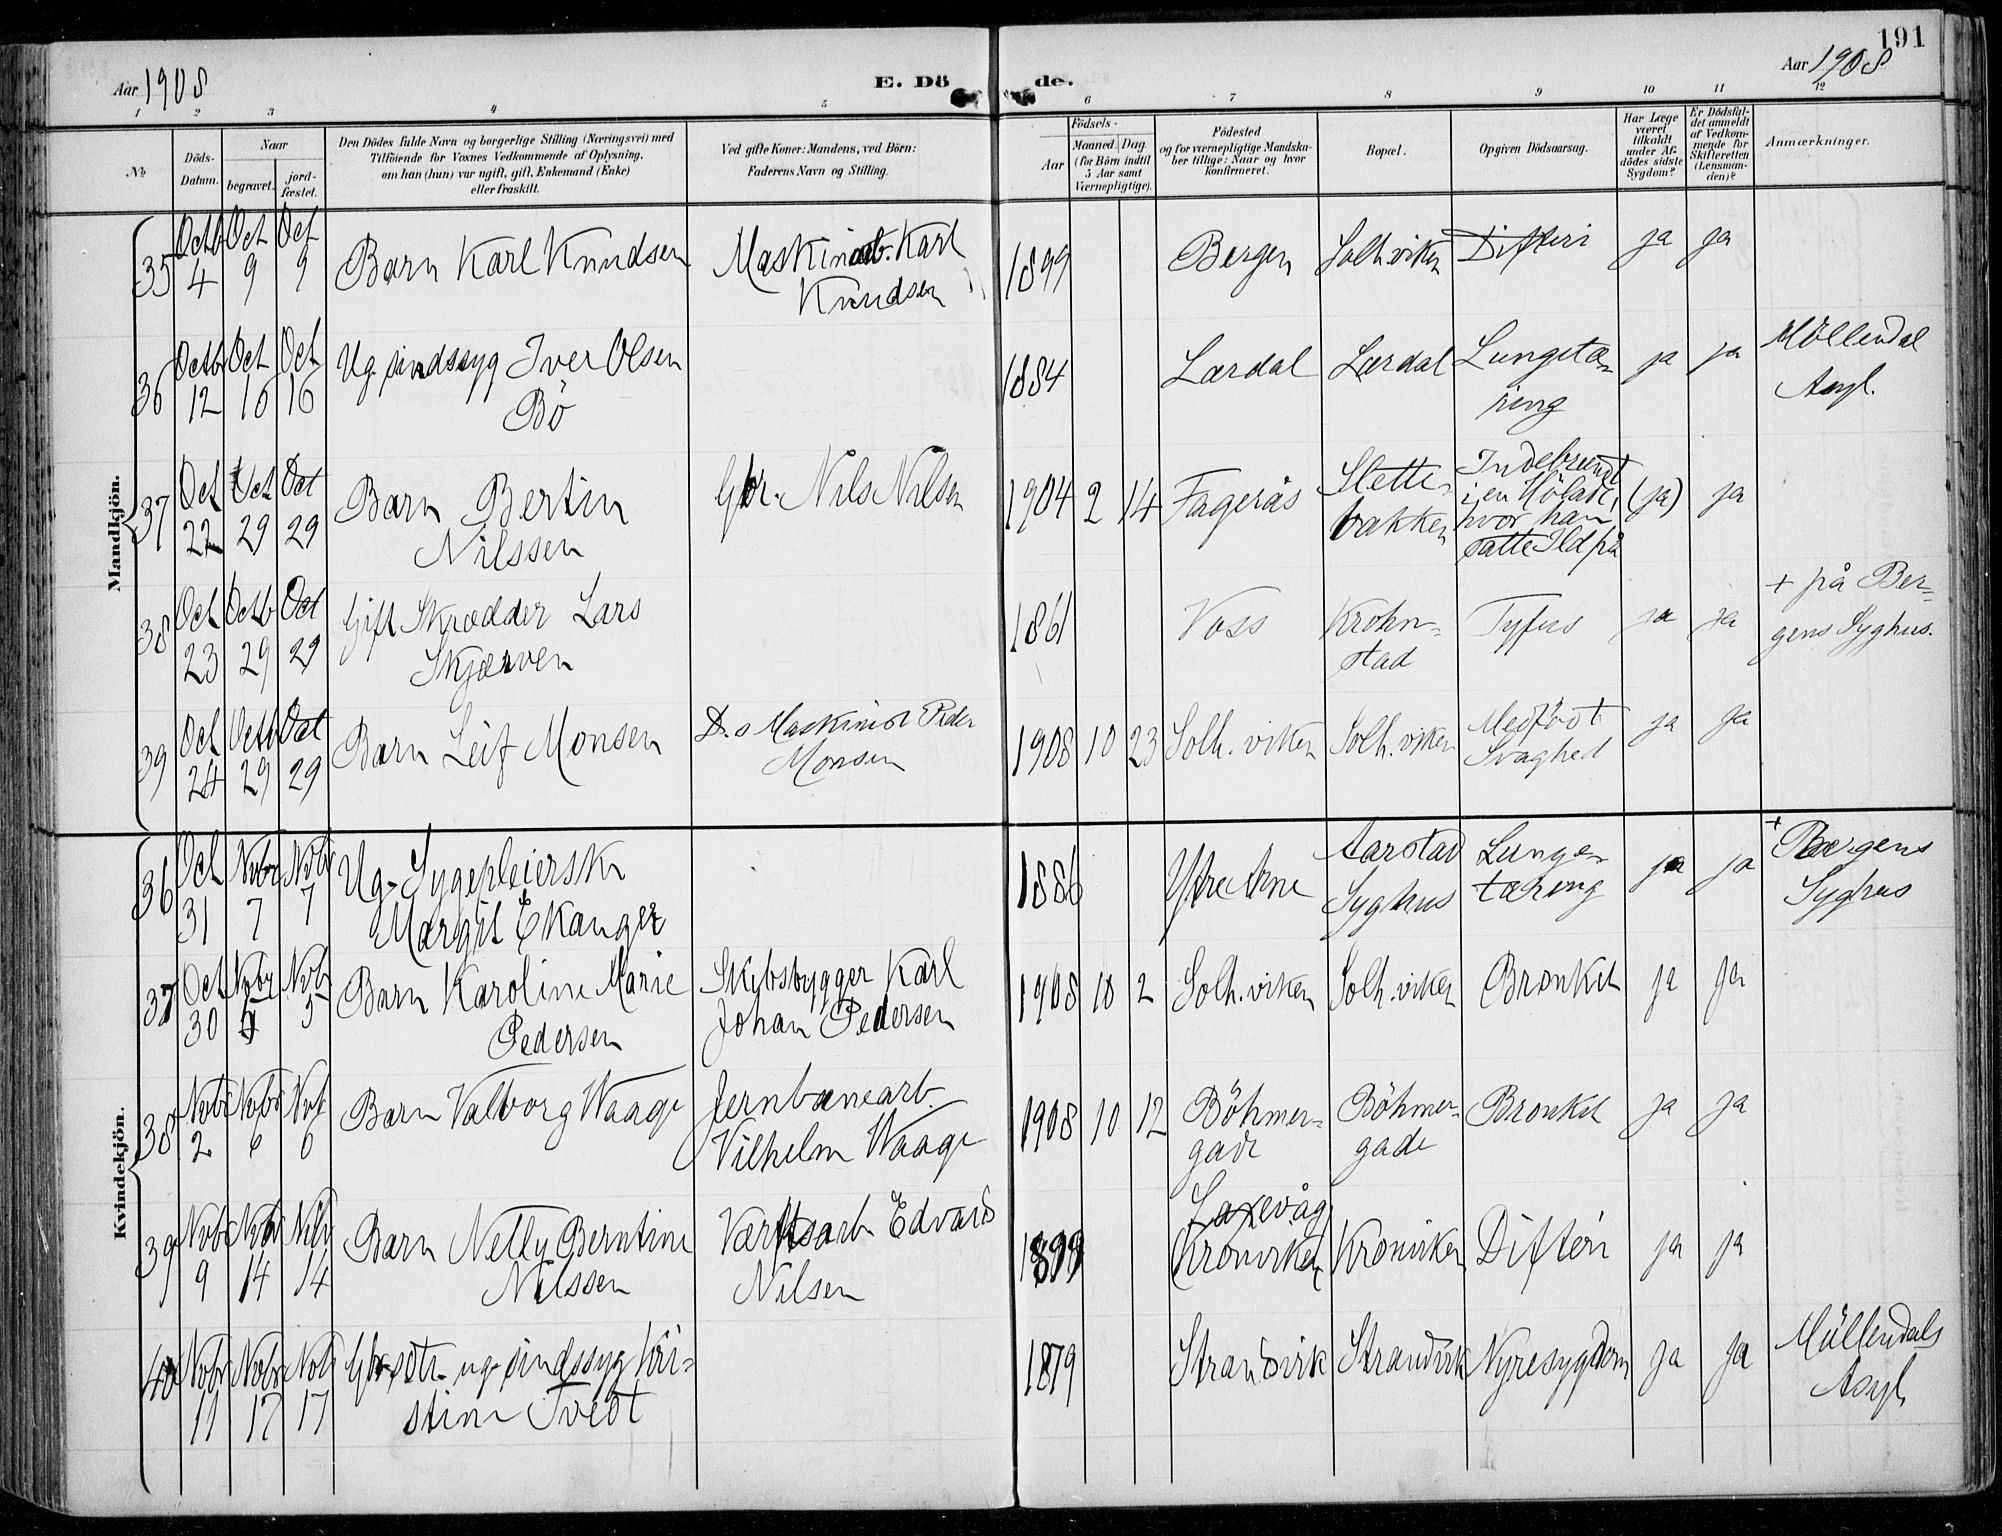 191
Aar 1908
E. Döde.
Aar 1908
1 2 3 4 5 6 7 8 9 10 11 12
No
Döds-
Datum.
Naar
begravet.
jord-
fæstet.
Den Dödes fulde Navn og borgerlige Stilling (Næringsvei) med
Tilföiende for Voxnes Vedkommende af Oplysning.
om han (hun) var ugift, gift, Enkemand (Enke)
eller fraskilt.
Ved gifte Koner: Mandens, ved Börn:
Faderens Navn og Stilling.
Födsels-
Aar
Maaned. Dag.
(for Börn indtil
5 Aar samt
Værnepligtige).
Födested
og for værnepligtige Mandska-
ber tillige: Naar og hvor
konfirmeret.
Bopæl.
Opgiven Dödsaarsag.
Har Læge
været
tilkaldt
under Af-
dödes sidste
Sygdom?
Er Dödsfal-
det anmeldt
af Vedkom-
mende for
Skifteretten
(Lensman-
den)?
Anmærkninger.
Mandkjön.
35 Octb 4 Oct 9 Oct 9 Barn Karl Knudsen Maskinarb. Karl Knudsen 1899 Bergen Solh.viken Difteri ja ja
36 Octb 12 Oct 16 Oct 16 Ug. sindssyg Iver Olsen Bö 1884 Lærdal Lærdal Lungetæ- ring ja ja Möllendal Asyl.
37 Oct 22 Oct 29 Oct 29 Barn Bertin Nilssen Gbr. Nils Nilsen 1904 2 14 Fagerås Slette- bakken Indebrændt i en Hölade, hvor han satte Ild på (ja) ja
38 Oct 23 Octb 29 Oct 29 Gift Skrædder Lars Skjerven 1861 Voss Krohn- stad Tyfus ja ja + på Ber- gens Syghus.
39 Oct 24 Octb 29 Oct 29 Barn Leif Monsen D.s Maskinist Peder Monsen 1908 10 23 Solh. viken Solh. viken Medfödt Svaghed ja ja
Kvindekjön.
36 Oct 31 Novbr 7 Novbr 7 Ug. Sygepleierske Margit Ekanger 1886 Ytre Arne Aarstad Syghus Lunge- tæring ja ja + Bergens Syghus
37 Oct 30 Novbr 5 Novb 5 Barn Karoline Marie Pedersen Skibsbygger Karl Johan Pedersen 1908 10 2 Solh. viken Solh. viken Bronkit ja ja
38 Novbr 2 Novbr 6 Novb 6 Barn Valborg Waage Jernbanearb. Vilhelm Waage 1908 10 12 Böhmer- gade Böhmer- gade Bronkit ja ja
39 Novbr 9 Novbr 14 Novbr 14 Barn Nelly Berntine Nilssen Værftsarb Edvard Nilsen 1899 Laxevåg Kronviken Kronviken Difteri ja ja
40 Novbr 11 Novbr 17 Novb 17 Gbr.sdtr. ug. sindssyg Kri- stine Tvedt 1879 Strandvik Strandvik Nyresygdom ja ja Möllendals Asyl